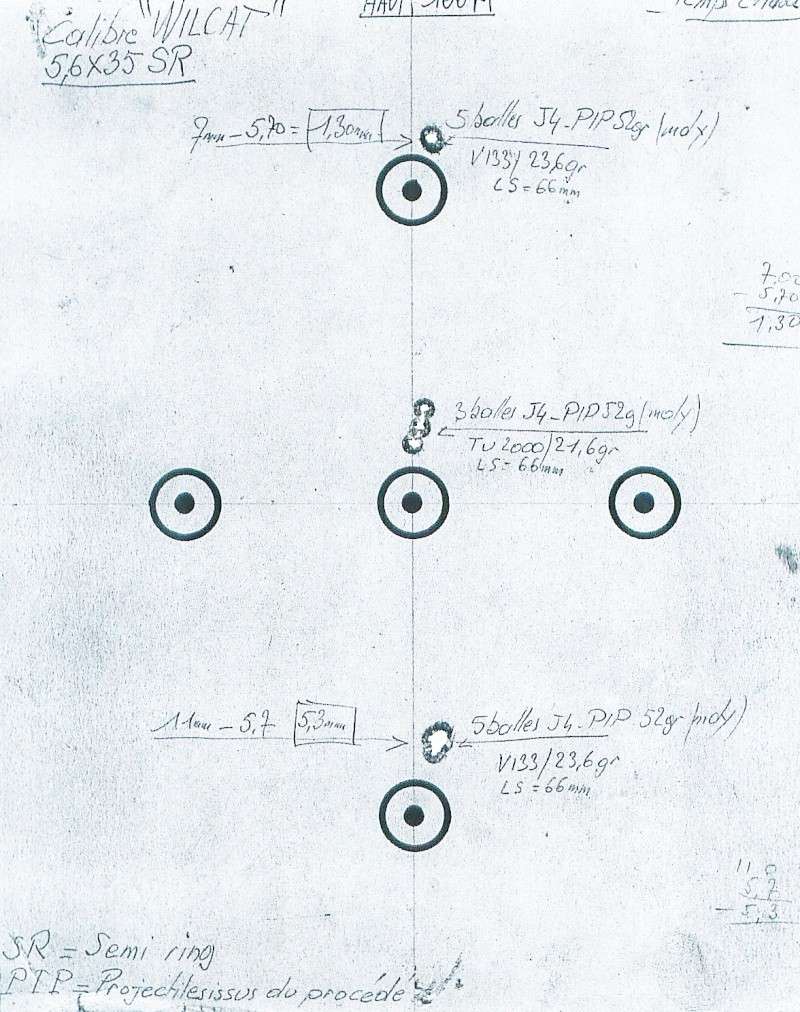 Calibre "WILCAT"
5,6X35 SR
HAUT 100M
Temps
7mm - 5,70 = 1,30mm
5 balles J4-PIP 52gr (moly)
V133/ 23,6gr
LS = 66mm
7,00
- 5,70
1,30
3 balles J4-PIP 52g (moly)
TU 2000/21,6gr
LS = 66mm
11mm - 5,7 5,3mm
5 balles J4-PIP 52gr (moly)
V133/23,6gr
LS = 66mm
11,0
5,7
- 5,3
SR = Semi ring
PIP = Projectiles issus du procédé